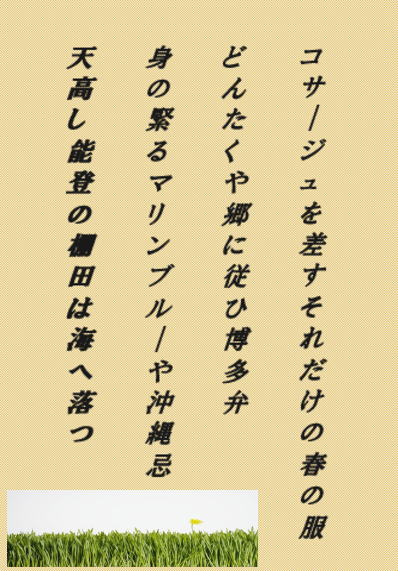 コサージュを差すそれだけの春の服
どんたくや郷に従ひ博多弁
身の緊るマリンブルーや沖縄忌
天高し能登の棚田は海へ落つ